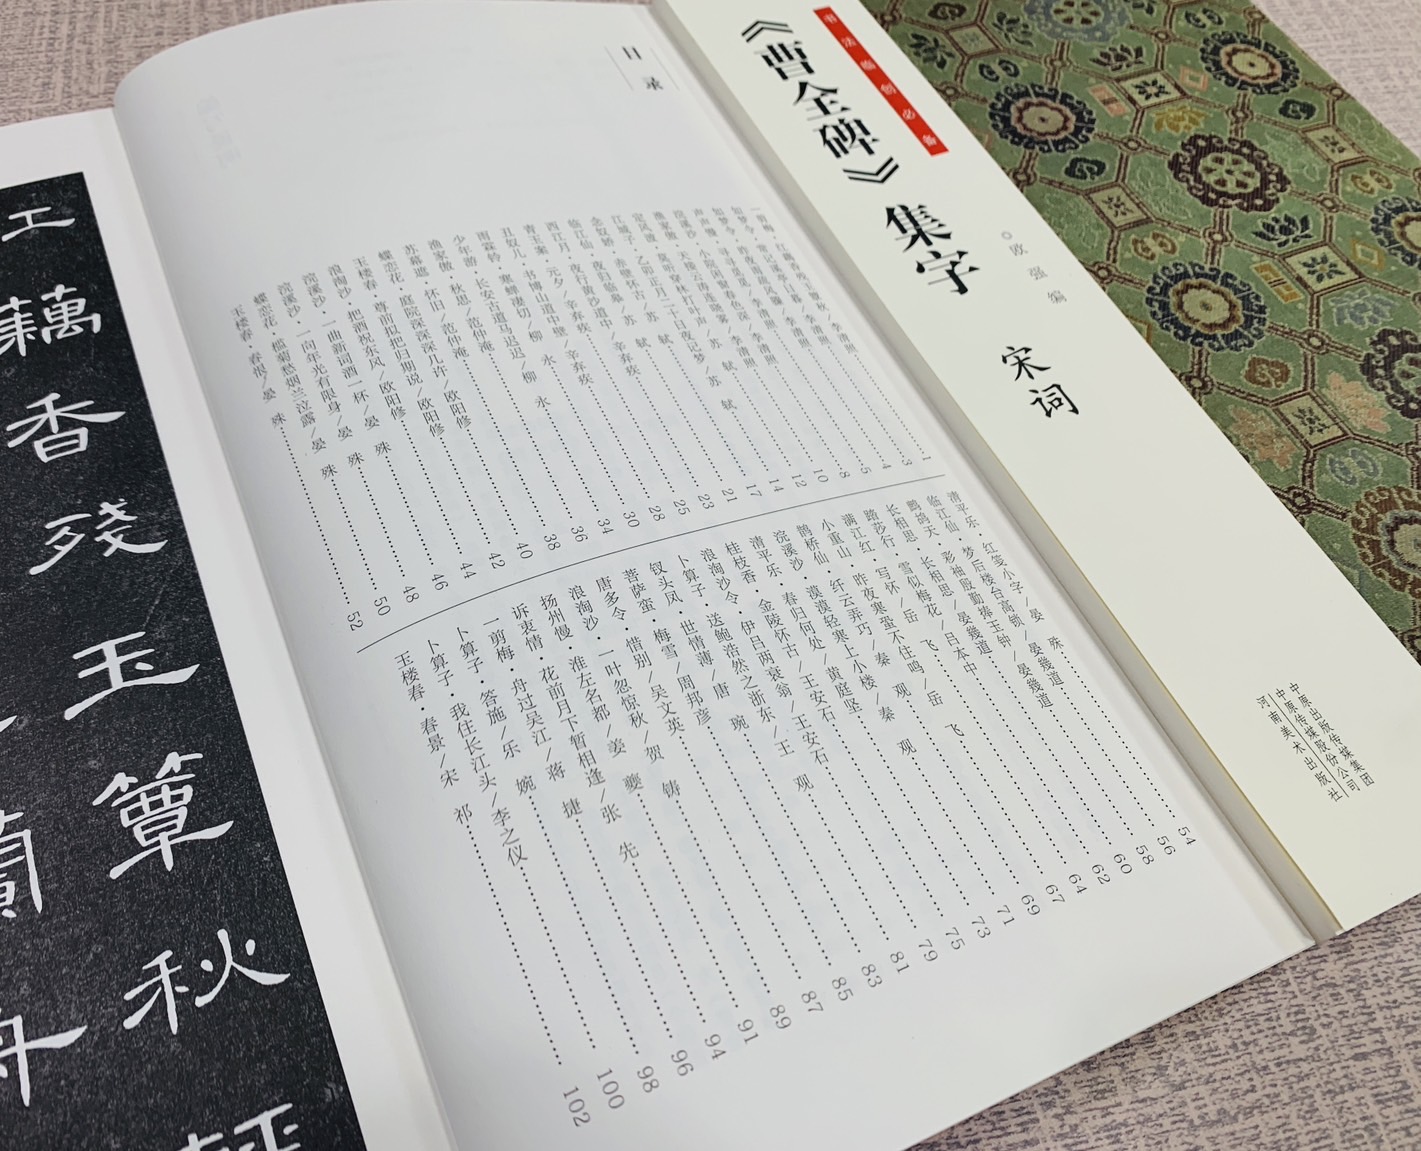 书法临创必备
《曹全碑》集字
宋词
○欧强 编
中原出版传媒集团
中原传媒股份公司
河南美术出版社
目录
一剪梅·红藕香残玉簟秋/李清照……1
如梦令·常记溪亭日暮/李清照……3
如梦令·昨夜雨疏风骤/李清照……4
声声慢·寻寻觅觅/李清照……5
浣溪沙·小院闲窗春色深/李清照……8
渔家傲·天接云涛连晓雾/李清照……10
定风波·莫听穿林打叶声/苏 轼……12
江城子·乙卯正月二十日夜记梦/苏 轼……14
念奴娇·赤壁怀古/苏 轼……17
临江仙·夜归临皋/苏 轼……21
西江月·夜行黄沙道中/辛弃疾……23
青玉案·元夕/辛弃疾……25
丑奴儿·书博山道中壁/辛弃疾……28
雨霖铃·寒蝉凄切/柳 永……30
少年游·长安古道马迟迟/柳 永……34
渔家傲·秋思/范仲淹……36
苏幕遮·怀旧/范仲淹……38
蝶恋花·庭院深深深几许/欧阳修……40
玉楼春·尊前拟把归期说/欧阳修……42
浪淘沙·把酒祝东风/欧阳修……44
浣溪沙·一曲新词酒一杯/晏 殊……46
浣溪沙·一向年光有限身/晏 殊……48
蝶恋花·槛菊愁烟兰泣露/晏 殊……50
玉楼春·春恨/晏 殊……52
清平乐·红笺小字/晏 殊……54
临江仙·梦后楼台高锁/晏幾道……56
鹧鸪天·彩袖殷勤捧玉钟/晏幾道……58
长相思·长相思/晏幾道……60
踏莎行·雪似梅花/吕本中……62
满江红·写怀/岳 飞……64
小重山·昨夜寒蛩不住鸣/岳 飞……67
鹊桥仙·纤云弄巧/秦 观……69
浣溪沙·漠漠轻寒上小楼/秦 观……71
清平乐·春归何处/黄庭坚……73
桂枝香·金陵怀古/王安石……75
浪淘沙令·伊吕两衰翁/王安石……79
卜算子·送鲍浩然之浙东/王 观……81
钗头凤·世情薄/唐 琬……83
菩萨蛮·梅雪/周邦彦……85
唐多令·惜别/吴文英……87
浪淘沙·一叶忽惊秋/贺 铸……89
扬州慢·淮左名都/姜 夔……91
诉衷情·花前月下暂相逢/张 先……94
一剪梅·舟过吴江/蒋 捷……96
卜算子·答施/乐 婉……98
卜算子·我住长江头/李之仪……100
玉楼春·春景/宋 祁……102
藕香残玉簟秋轻
蘭舟